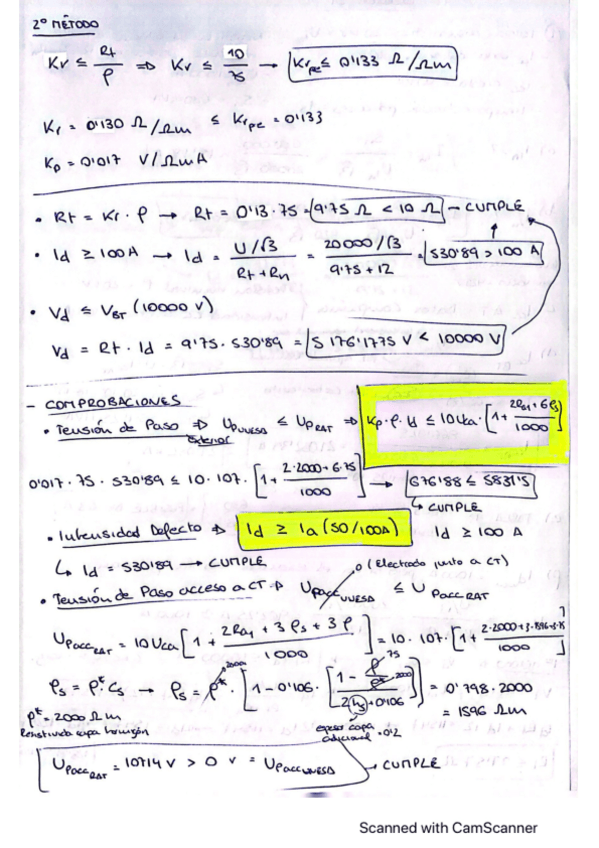 2º MÉTODO
Kr ≤ Rt/ρ ⇒ Kr ≤ 10/75 → Kr_pe ≤ 0'133 Ω/Ωm
Kr = 0'130 Ω/Ωm ≤ Kr_pe = 0'133
Kp = 0'017 V/ΩmA
• Rt = Kr · ρ → Rt = 0'13 · 75 = 9'75 Ω < 10 Ω → CUMPLE
• Id ≥ 100A → Id = (U/√3)/(Rt + Rn) = (20000/√3)/(9'75 + 12) = 530'89 > 100 A
• Vd ≤ V_BT (10000 V)
Vd = Rt · Id = 9'75 · 530'89 = 5176'1775 V < 10000 V
- COMPROBACIONES
• Tensión de Paso Exterior ⇒ Up_UNESA ≤ Up_RAT ⇒ Kp · ρ · Id ≤ 10 Uca · [1 + (2Ra1 + 6ρs)/1000]
0'017 · 75 · 530'89 ≤ 10 · 107 · [1 + (2·2000 + 6·75)/1000] → 676'88 ≤ 5831'5
↳ CUMPLE
• Intensidad Defecto ⇒ Id ≥ Ia (50/100A) Id ≥ 100 A
↳ Id = 530'89 → CUMPLE
• Tensión de Paso acceso a CT ⇒ Upacc_UNESA 0 (Electrodo junto a CT) ≤ U pacc_RAT
Upacc_RAT = 10 Uca [1 + (2Ra1 + 3ρs + 3ρ)/1000] = 10 · 107 · [1 + (2·2000 + 3·1596 + 3·75)/1000]
ρs = ρ* · Cs → ρs = ρ* 2000 · [1 - 0'106 · [(1 - ρ 75/ρ* 2000)/(2hs + 0'106)]] = 0'798 · 2000
ρ* = 2000 Ωm
= 1596 Ωm
Resistividad capa hormigón
espesor capa adicional = 0'2
Upacc_RAT = 10714 V > 0 V = Upacc_UNESA → CUMPLE
Scanned with CamScanner